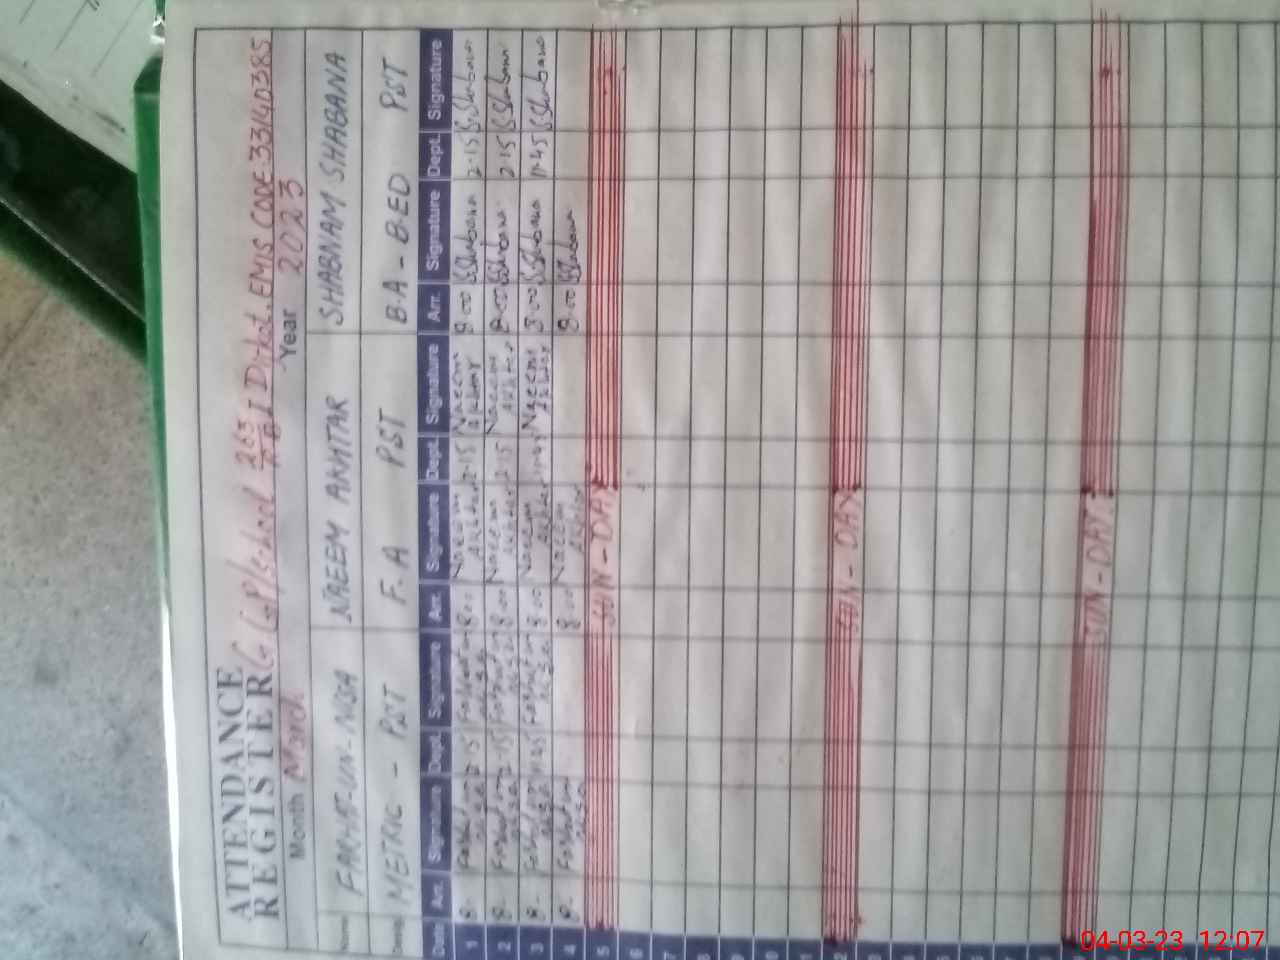 ATTENDANCE
REGISTER G.G.P/School 263 I Dirkot. EMIS CODE: 33140385
Month March Year 2023
Name FARHAT-UN-NISA NAEEM AKHTAR SHABNAM SHABANA
METRIC - PST F.A PST B.A - B.ED PST
Date Arr. Signature Dept. Signature Arr. Signature Dept. Signature Arr. Signature Dept. Signature
1 8. Farhat un nisa 2.15 Farhat un nisa 8.00 Naeem Akhtar 2.15 Naeem Akhtar 8.00 SShabana 2.15 SShabana
2 8. Farhat un nisa 2.15 Farhat un nisa 8.00 Naeem Akhtar 2.15 Naeem Akhtar 8.00 SShabana 2.15 SShabana
3 8. Farhat un nisa 11.45 Farhat un nisa 8.00 Naeem Akhtar 11.45 Naeem Akhtar 8.00 SShabana 11.45 SShabana
4 8. Farhat un nisa 8.00 Naeem Akhtar 8.00 SShabana
5 SUN-DAY
6
7
8
9
10
11
12 SUN-DAY
13
14
SUN-DAY
04-03-23 12:07